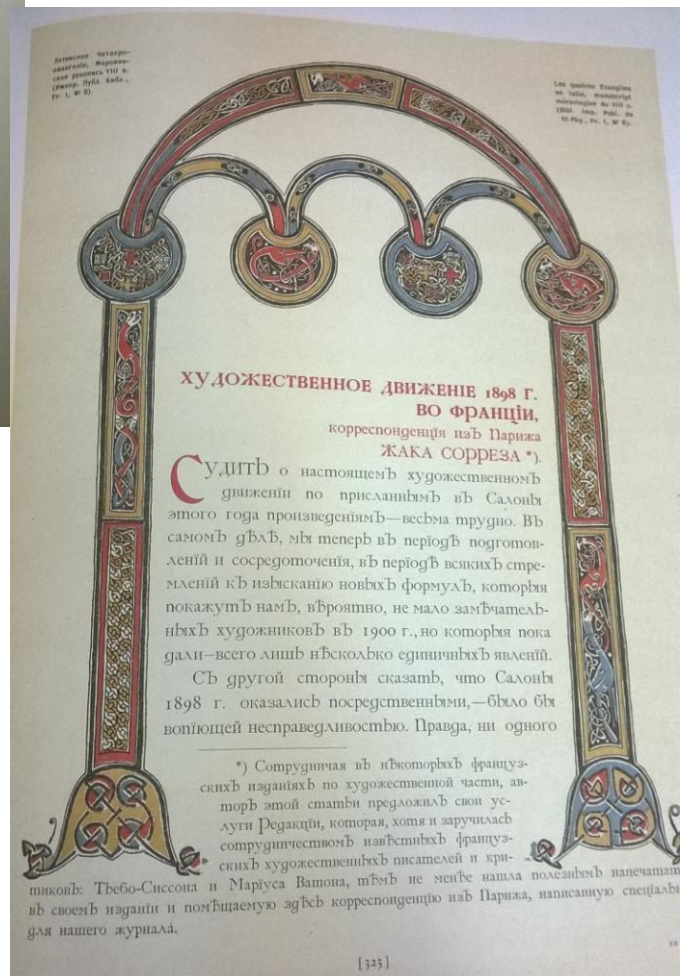 Латинское Четверо-
евангелие, Меровин-
ская рукопись VIII в.
(Импер. Публ. Библ.,
Fr. I, № 8).
Les quatres Évangiles
en latin, manuscript
mérovingien du VIII s.
(Bibl. Imp. Publ. de
St-Pbg., Fr. I, № 8).
ХУДОЖЕСТВЕННОЕ ДВИЖЕНІЕ 1898 Г.
ВО ФРАНЦІИ,
корреспонденція изъ Парижа
ЖАКА СОРРЕЗА *).
Судить о настоящемъ художественномъ
движеніи по присланнымъ въ Салоны
этого года произведеніямъ—весьма трудно. Въ
самомъ дѣлѣ, мы теперь въ періодѣ подготов-
леній и сосредоточенія, въ періодѣ всякихъ стре-
мленій къ изысканію новыхъ формулъ, которыя
покажутъ намъ, вѣроятно, не мало замѣчатель-
ныхъ художниковъ въ 1900 г., но которыя пока
дали—всего лишь нѣсколько единичныхъ явленій.
Съ другой стороны сказать, что Салоны
1898 г. оказались посредственными,—было бы
вопіющей несправедливостью. Правда, ни одного
*) Сотрудничая въ нѣкоторыхъ француз-
скихъ изданіяхъ по художественной части, ав-
торъ этой статьи предложилъ свои ус-
луги Редакціи, которая, хотя и заручилась
сотрудничествомъ извѣстныхъ француз-
скихъ художественныхъ писателей и кри-
тиковъ: Тьебо-Сиссона и Маріуса Вашона, тѣмъ не менѣе нашла полезнымъ напечатат
въ своемъ изданіи и помѣщаемую здѣсь корреспонденцію изъ Парижа, написанную спеціаль
для нашего журнала.
[323]